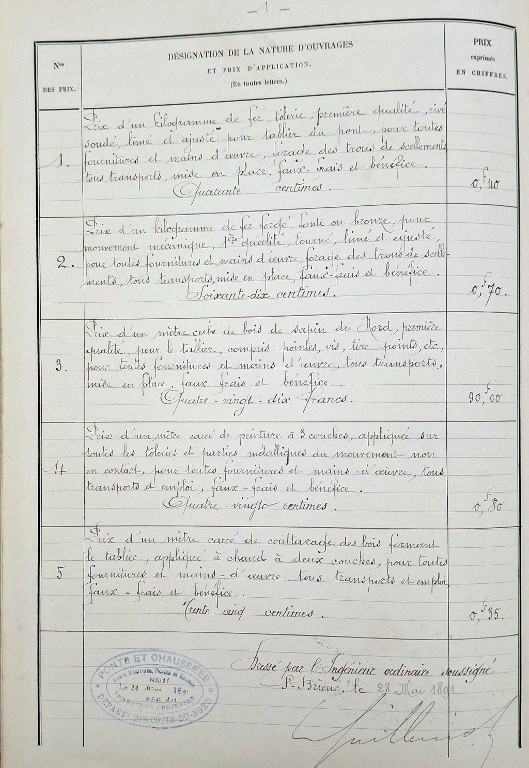 — 1 —
Nos
DES PRIX.
DÉSIGNATION DE LA NATURE D'OUVRAGES
ET PRIX D'APPLICATION.
(En toutes lettres.)
PRIX
exprimés
EN CHIFFRES.
1.
Prix d'un kilogramme de fer, tôlerie, première qualité, rivé
soudé, limé et ajusté pour tablier du pont, pour toutes
fournitures et mains d'œuvre, forage des trous de scellements
tous transports, mise en place, faux-frais et bénéfice.
Quarante centimes.
0,f40
2.
Prix d'un kilogramme de fer forgé, fonte ou bronze, pour
mouvement mécanique, 1ère qualité, tourné, limé et ajusté,
pour toutes fournitures et mains d'œuvre, forage des trous de scelle-
ments, tous transports, mise en place, faux-frais et bénéfice.
Soixante-dix centimes.
0,f70
3.
Prix d'un mètre cube de bois de sapin du Nord, première
qualité, pour le tablier, compris pointes, vis, tire points, etc,
pour toutes fournitures et mains d'œuvre, tous transports,
mise en place, faux frais et bénéfice.
Quatre-vingt-dix francs.
90,f00
4
Prix d'un mètre carré de peinture à 3 couches, appliquée sur
toutes les tôleries et parties métalliques du mouvement non
en contact, pour toutes fournitures et mains-d'œuvre, tous
transports et emploi, faux-frais et bénéfice.
Quatre-vingts centimes.
0,f80
5
Prix d'un mètre carré de coaltarage des bois formant
le tablier, appliqué à chaud à deux couches, pour toutes
fournitures et mains-d'œuvre tous transports et emploi
faux-frais et bénéfice.
Trente cinq centimes.
0,f35.
Dressé par l'Ingénieur ordinaire soussigné
St-Brieuc, le 28 Mai 1891
PONTS ET CHAUSSÉES
Le 28 Mai 1891
INGÉNIEUR ORDINAIRE
DÉPART. DES COTES-DU-NORD